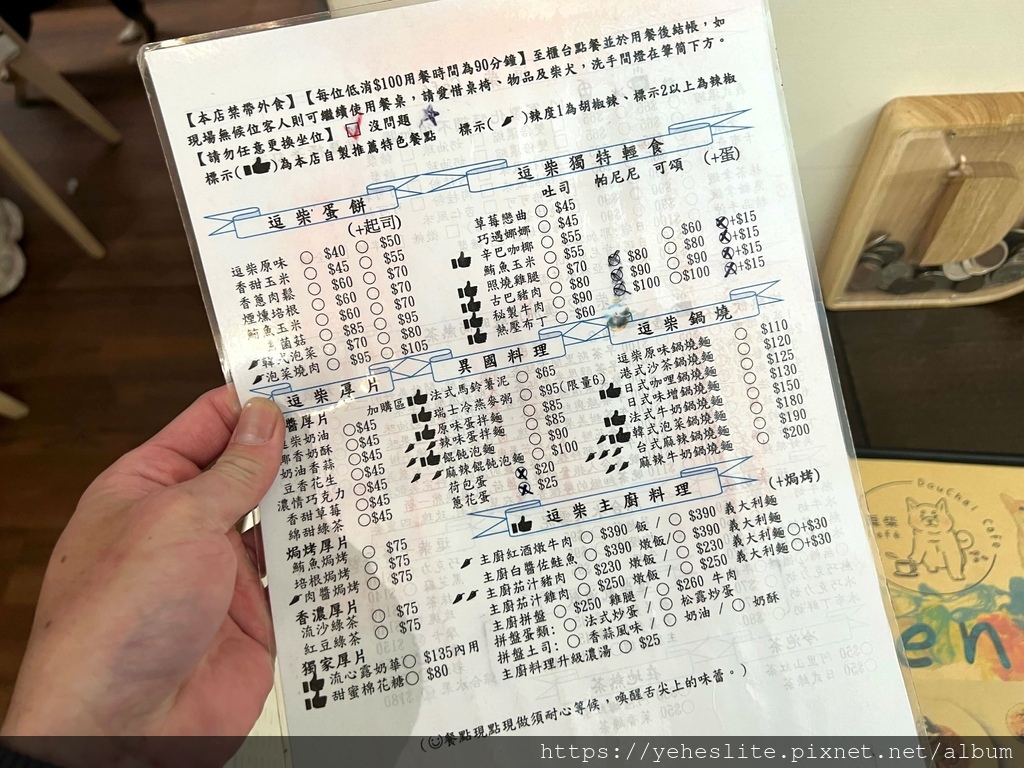 【本店禁帶外食】【每位低消$100用餐時間為90分鐘】至櫃台點餐並於用餐後結帳，如
現場無候位客人則可繼續使用餐桌，請愛惜桌椅、物品及柴犬，洗手間燈在筆筒下方。
【請勿任意更換坐位】 沒問題 標示( )辣度1為胡椒辣、標示2以上為辣椒
標示( )為本店自製推薦特色餐點
逗柴蛋餅
(+起司)
逗柴原味 $40 $50
香甜玉米 $45 $55
香蔥肉鬆 $60 $70
煙燻培根 $60 $70
鮪魚玉米 $85 $95
菌菇 $70 $80
韓式泡菜
泡菜燒肉 $95 $105
逗柴獨特輕食
吐司 帕尼尼 可頌 (+蛋)
草莓戀曲 $45
巧遇娜娜 $45
辛巴咖椰 $55
鮪魚玉米 $55 $60 +$15
照燒雞腿 $70 $80 $80 +$15
古巴豬肉 $80 $90 $90 +$15
秘製牛肉 $90 $100 $100 +$15
熱壓布丁 $60
逗柴厚片
醬厚片
逗柴奶油 $45
椰香奶酥 $45
奶油香蒜 $45
豆香花生 $45
濃情巧克力 $45
香甜草莓 $45
綿甜綠茶 $45
焗烤厚片
鮪魚焗烤 $75
培根焗烤 $75
肉醬焗烤 $75
香濃厚片
流沙綠茶 $75
紅豆綠茶 $75
獨家厚片
流心露奶華 $135內用
甜蜜棉花糖 $80
異國料理
加購區 法式馬鈴薯泥 $65
瑞士冷燕麥粥 $95(限量6)
原味蛋拌麵 $85
辣味蛋拌麵 $85
餛飩泡麵 $90
麻辣餛飩泡麵 $100
荷包蛋 $20
蔥花蛋 $25
逗柴鍋燒
逗柴原味鍋燒麵 $110
港式沙茶鍋燒麵 $120
日式咖哩鍋燒麵 $125
日式味增鍋燒麵 $130
法式牛奶鍋燒麵 $150
韓式泡菜鍋燒麵 $180
台式麻辣鍋燒麵 $190
麻辣牛奶鍋燒麵 $200
逗柴主廚料理
(+焗烤)
主廚紅酒燉牛肉 $390 飯 / $390 義大利麵
主廚白醬佐鮭魚 $390 燉飯/ $390 義大利麵 +$30
主廚茄汁豬肉 $230 燉飯/ $230 義大利麵 +$30
主廚茄汁雞肉 $250 燉飯/ $250
主廚拼盤 $250 雞腿 / $260 牛肉
拼盤蛋類: 法式炒蛋 / 松露炒蛋
拼盤土司: 香蒜風味 / 奶油 / 奶酥
主廚料理升級濃湯 $25
(餐點現點現做須耐心等候，喚醒舌尖上的味蕾。)
DouChai Cafe
en
https://yeheslite.pixnet.net/album